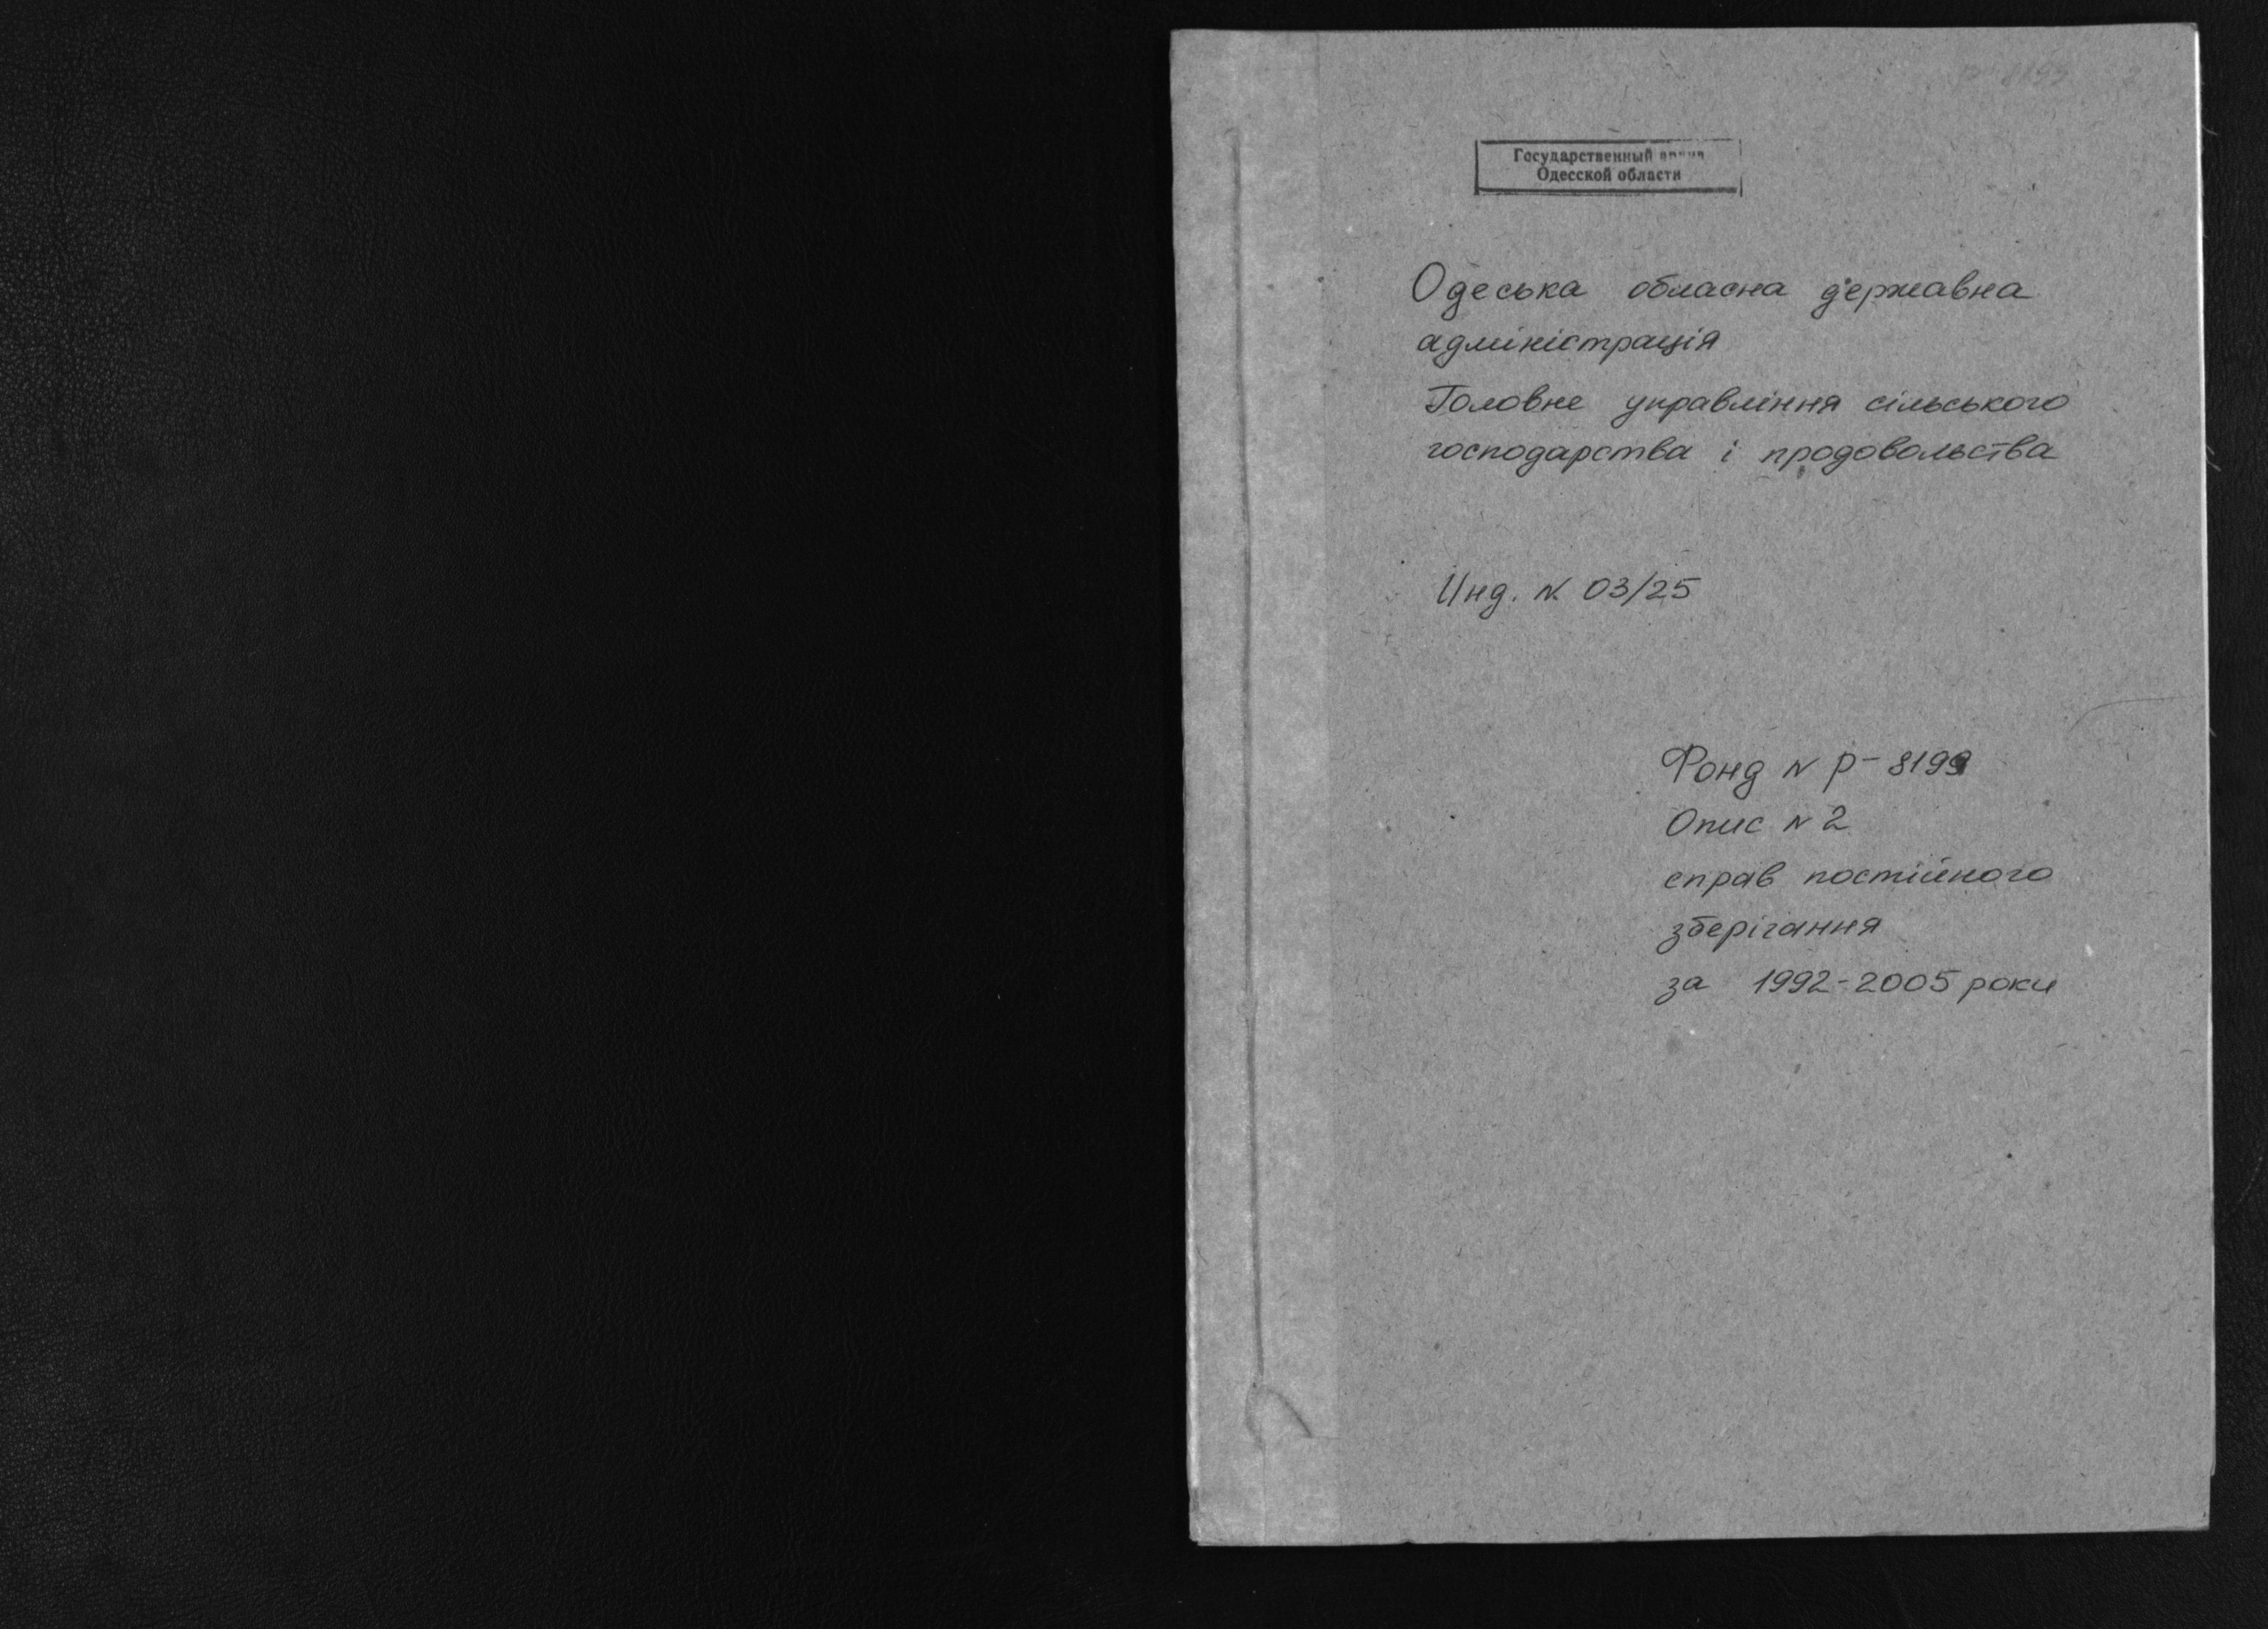 Р-8199 2
Государственный архив
Одесской области
Одеська обласна державна
адміністрація
Головне управління сільського
господарства і продовольства
Инд. N 03/25
Фонд N Р-8199
Опис N 2
справ постійного
зберігання
за 1992-2005 роки